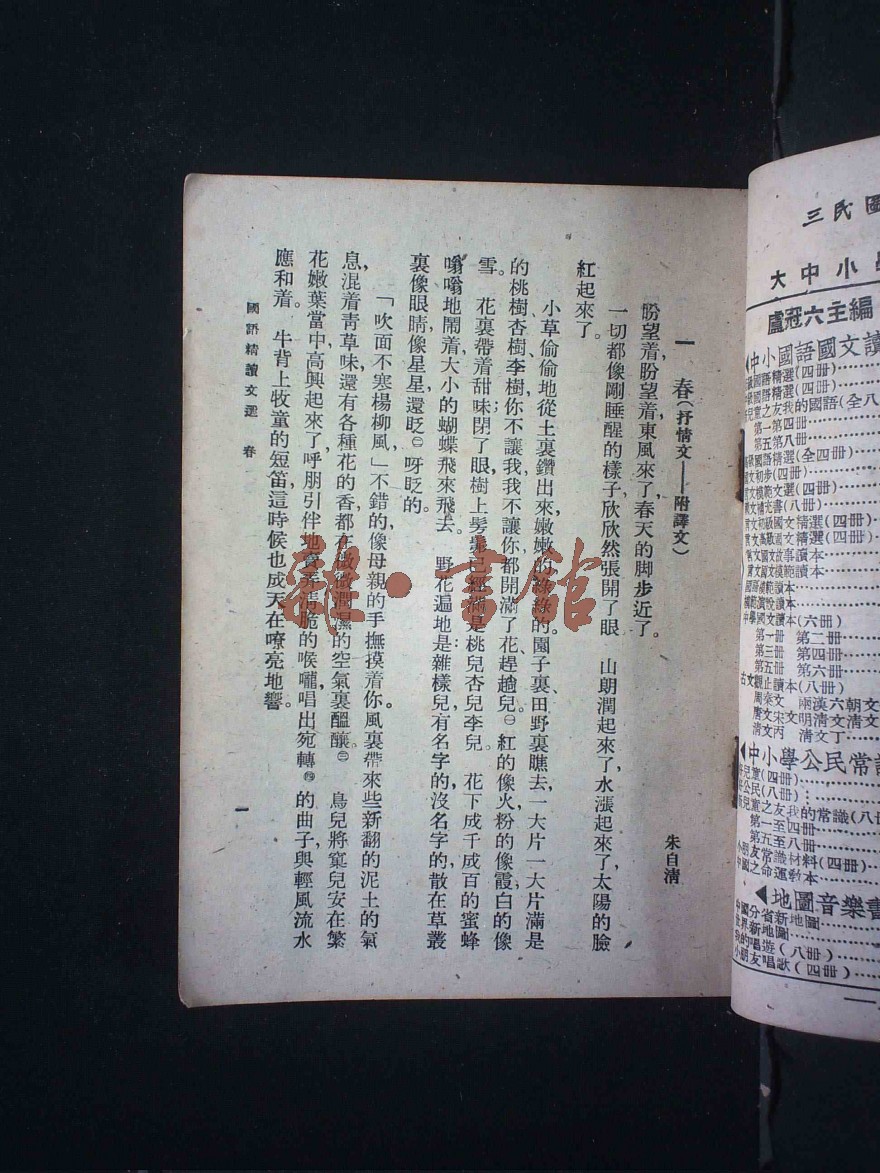 一　春(抒情文——附譯文)
朱自清
盼望着,盼望着,東風來了,春天的脚步近了。
一切都像剛睡醒的樣子,欣欣然張開了眼　山朗潤起來了,水漲起來了,太陽的臉
紅起來了。
小草偷偷地從土裏鑽出來,嫩嫩的,綠綠的。園子裏,田野裏,瞧去,一大片一大片滿是
的桃樹杏樹李樹,你不讓我,我不讓你,都開滿了花趕趟兒。㊀紅的像火,粉的像霞,白的像
雪。花裏帶着甜味,閉了眼,樹上髣髴已經滿是桃兒杏兒李兒。花下成千成百的蜜蜂
嗡嗡地鬧着,大小的蝴蝶飛來飛去。野花遍地是:雜樣兒,有名字的,沒名字的,散在草叢
裏像眼睛,像星星,還眨㊁呀眨的。
「吹面不寒楊柳風,」不錯的,像母親的手撫摸着你,風裏帶來些新翻的泥土的氣
息,混着青草味,還有各種花的香,都在微微潤濕的空氣裏醞釀。㊂鳥兒將窠兒安在繁
花嫩葉當中,高興起來了,呼朋引伴地賣弄淸脆的喉嚨,唱出宛轉㊃的曲子,與輕風流水
應和着。牛背上牧童的短笛,這時候也成天在嘹亮地響。
國語精讀文選　春
一
三民圖
大中小學
盧冠六主編
◀中小國語國文讀
國語精選(四冊)
國語精選(四冊)
兒童之友我的國語(全八
第一第四冊
第五第八冊
級國語精選(全四冊)
文初步(四冊)
文模範文選(四冊)
文補充書(八冊)
文初級國文精選(四冊)
文高級國文精選(四冊)
文國文故事讀本
文國文模範讀本
國語模範讀本
模範演說讀本
中學國文讀本(六冊)
第一冊　第二冊
第三冊　第四冊
第五冊　第六冊
古文觀止讀本(八冊)
周秦文　兩漢六朝文
唐文宋文明清文清文
清文丙　清文丁
◀中小學公民常識
兒童(四冊)
公民(八冊)
兒童之友我的常識(八冊
第一至四冊
第五至八冊
小朋友常識材料(四冊)
中國之命運教本
◀地圖音樂書
中國分省新地圖
世界新地圖
我的唱遊(八冊)
小朋友唱歌(四冊)
雜·書館